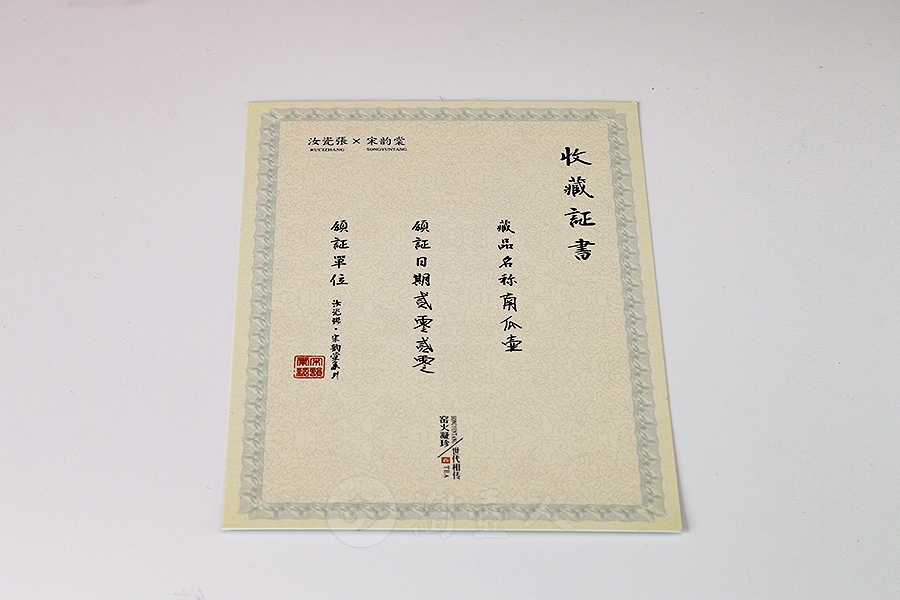 汝瓷張 × 宋韵棠
RUCIZHANG SONGYUNTANG
收藏証書
藏品名称南瓜壶
領証日期貳零貳零
領証單位汝瓷張·宋韵堂
窑火凝珍/世代相传
SONGYUNTANG
TEA
淘壶人